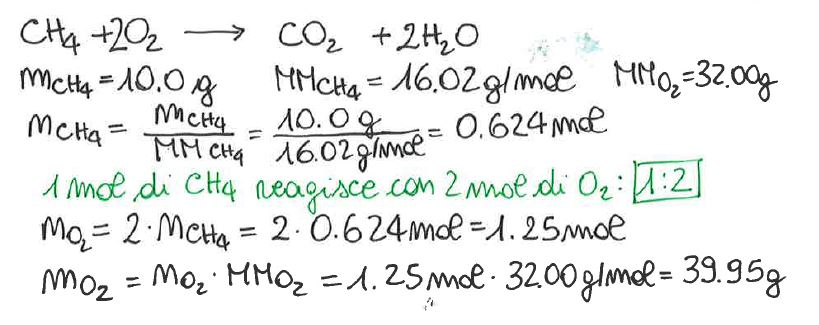 CH₄ + 2O₂ ⟶ CO₂ + 2H₂O
mCH₄ = 10.0 g MMCH₄ = 16.02 g/mol MMO₂ = 32.00g
nCH₄ = mCH₄/MMCH₄ = 10.0 g/16.02 g/mol = 0.624 mol
1 mol di CH₄ reagisce con 2 mol di O₂: 1:2
nO₂ = 2·nCH₄ = 2·0.624 mol = 1.25 mol
mO₂ = nO₂·MMO₂ = 1.25 mol·32.00 g/mol = 39.95 g